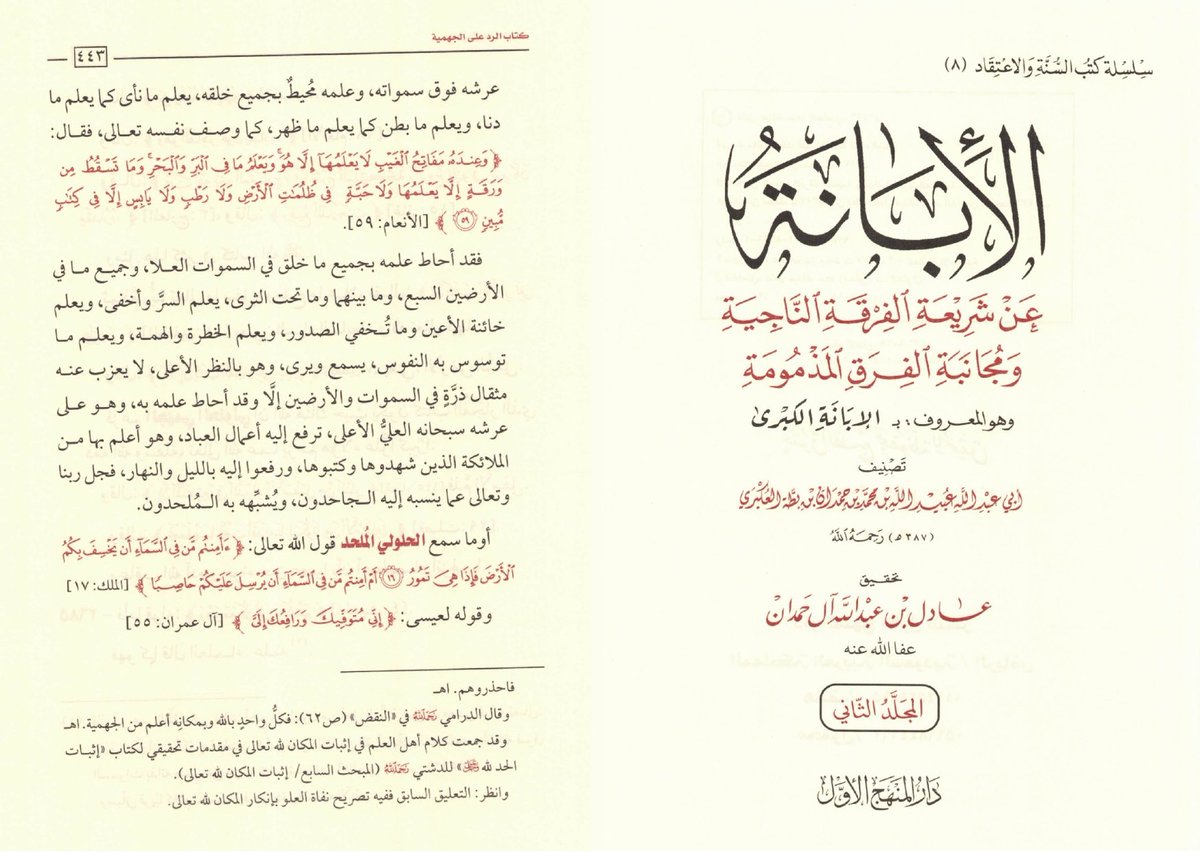 سلسلة كتب السنة والاعتقاد (٨)
الإبانة
عن شريعة الفرقة الناجية
ومجانبة الفرق المذمومة
وهو المعروف: بـ الإبانة الكبرى
تصنيف
أبي عبد الله عبيد الله بن محمد بن حمدان بن بطة العكبري
(٣٨٧هـ) رحمه الله
تحقيق
عادل بن عبد الله آل حمدان
عفا الله عنه
المجلد الثاني
دار المنهج الأول
كتاب الرد على الجهمية
٤٤٣
عرشه فوق سمواته، وعلمه مُحيطٌ بجميع خلقه، يعلم ما نأى كما يعلم ما
دنا، ويعلم ما بطن كما يعلم ما ظهر، كما وصف نفسه تعالى، فقال:
﴿وَعِندَهُۥ مَفَاتِحُ ٱلْغَيْبِ لَا يَعْلَمُهَآ إِلَّا هُوَ ۚ وَيَعْلَمُ مَا فِى ٱلْبَرِّ وَٱلْبَحْرِ ۚ وَمَا تَسْقُطُ مِن
وَرَقَةٍ إِلَّا يَعْلَمُهَا وَلَا حَبَّةٍ فِى ظُلُمَٰتِ ٱلْأَرْضِ وَلَا رَطْبٍ وَلَا يَابِسٍ إِلَّا فِى كِتَٰبٍ
مُّبِينٍ ٥٩﴾ [الأنعام: ٥٩].
فقد أحاط علمه بجميع ما خلق في السموات العلا، وجميع ما في
الأرضين السبع، وما بينهما وما تحت الثرى، يعلم السرَّ وأخفى، ويعلم
خائنة الأعين وما تُخفي الصدور، ويعلم الخطرة والهمة، ويعلم ما
توسوس به النفوس، يسمع ويرى، وهو بالنظر الأعلى، لا يعزب عنه
مثقال ذرَّةٍ في السموات والأرضين إلَّا وقد أحاط علمه به، وهو على
عرشه سبحانه العليُّ الأعلى، ترفع إليه أعمال العباد، وهو أعلم بها من
الملائكة الذين شهدوها وكتبوها، ورفعوا إليه بالليل والنهار، فجل ربنا
وتعالى عما ينسبه إليه الجاحدون، ويُشبِّهه به المُلحدون.
أوما سمع الحلولي المُلحد قول الله تعالى: ﴿ءَأَمِنتُم مَّن فِى ٱلسَّمَآءِ أَن يَخْسِفَ بِكُمُ
ٱلْأَرْضَ فَإِذَا هِىَ تَمُورُ ١٦ أَمْ أَمِنتُم مَّن فِى ٱلسَّمَآءِ أَن يُرْسِلَ عَلَيْكُمْ حَاصِبًا﴾ [الملك: ١٧]
وقوله لعيسى: ﴿إِنِّى مُتَوَفِّيكَ وَرَافِعُكَ إِلَىَّ﴾ [آل عمران: ٥٥]
فاحذروهم. اهـ
وقال الدرامي رحمه الله في «النقض» (ص٦٢): فكلُّ واحدٍ بالله وبمكانِه أعلم من الجهمية. اهـ
وقد جمعت كلام أهل العلم في إثبات المكان لله تعالى في مقدمات تحقيقي لكتاب «إثبات
الحد لله ﷻ» للدشتي رحمه الله (المبحث السابع/ إثبات المكان لله تعالى).
وانظر: التعليق السابق ففيه تصريح نفاة العلو بإنكار المكان لله تعالى.